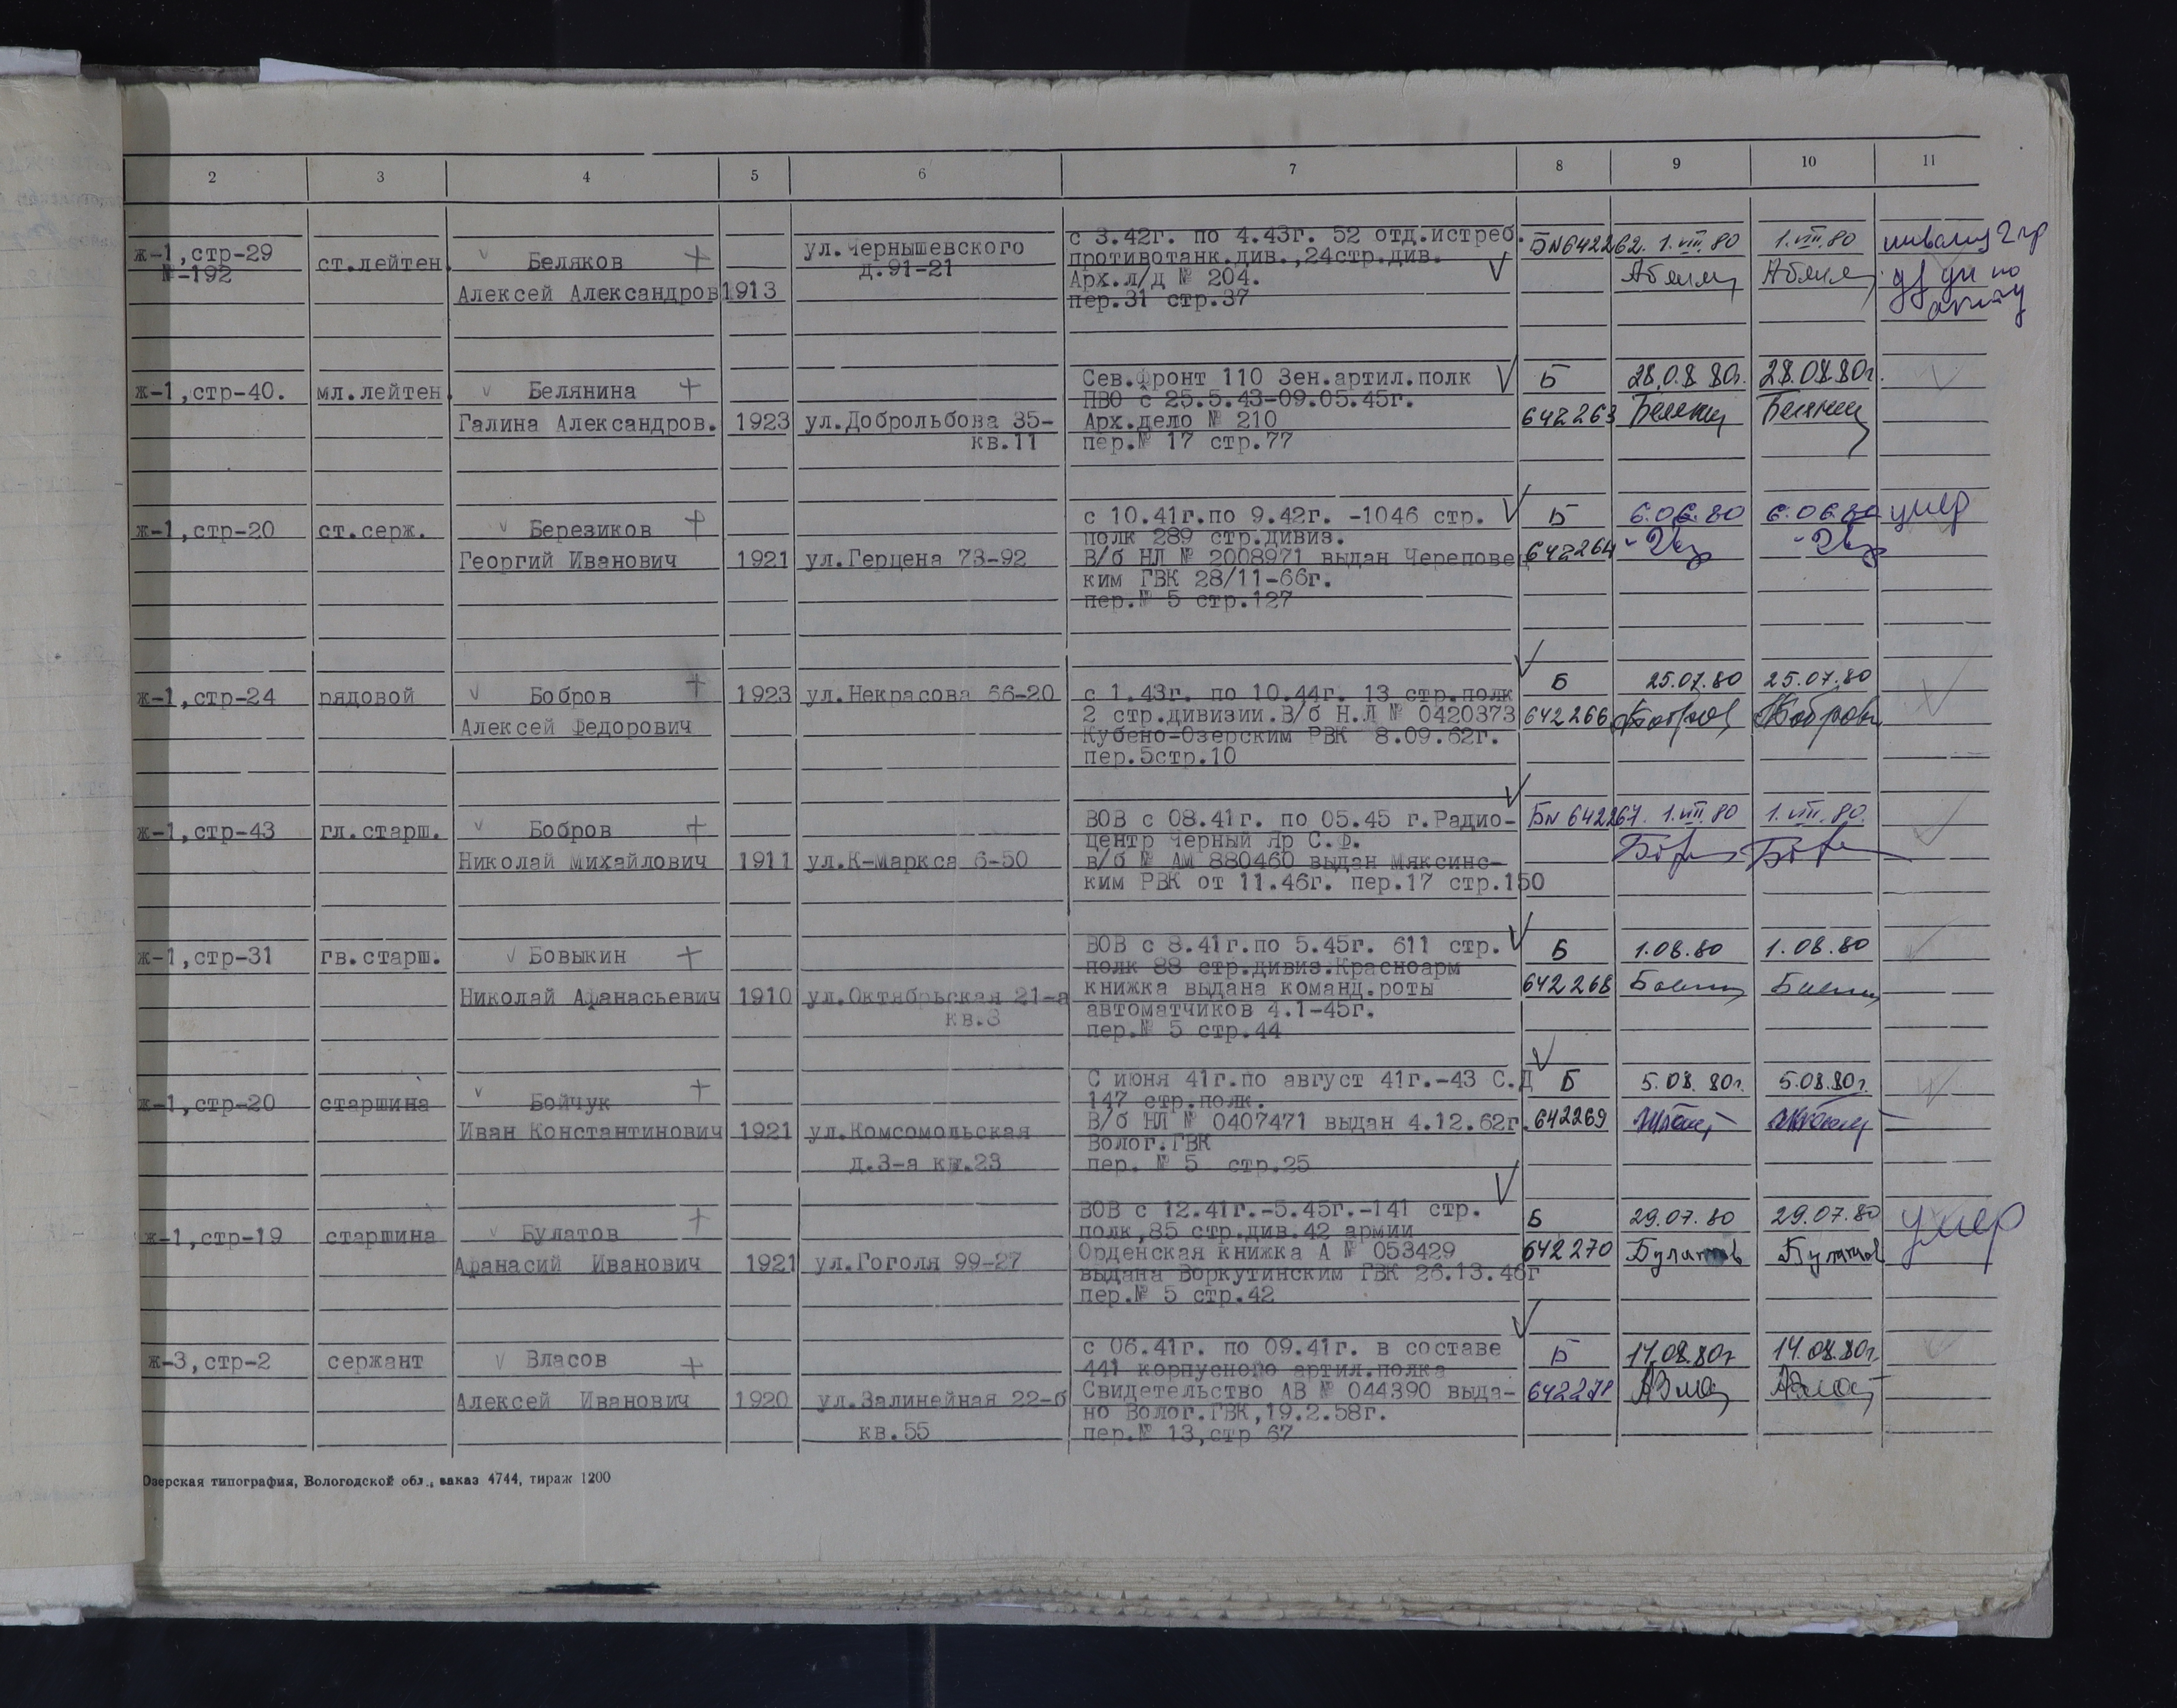 2 3 4 5 6 7 8 9 10 11
ж-1,стр-29
№-192
ст.лейтен.
Беляков +
Алексей Александров
1913
ул.Чернышевского
д.91-21
с 3.42г. по 4.43г. 52 отд.истреб.
противотанк.див.,24стр.див.
Арх.л/д № 204.
пер.31 стр.37
Б№642262.
1.VIII.80
1.VIII.80
ж-1,стр-40.
мл.лейтен.
Белянина +
Галина Александров.
1923
ул.Доброльбова 35-
кв.11
Сев.фронт 110 Зен.артил.полк
ПВО с 25.5.43-09.05.45г.
Арх.дело № 210
пер.№ 17 стр.77
Б
642263
28.08.80г.
28.08.80г.
ж-1,стр-20
ст.серж.
Березиков +
Георгий Иванович
1921
ул.Герцена 73-92
с 10.41г.по 9.42г. -1046 стр.
полк 289 стр.дивиз.
В/б НЛ № 2008971 выдан Череповец
ким ГВК 28/11-66г.
пер.№ 5 стр.127
Б
642264
6.06.80
6.06.80
умер
ж-1,стр-24
рядовой
Бобров +
Алексей Федорович
1923
ул.Некрасова 66-20
с 1.43г. по 10.44г. 13 стр.полк
2 стр.дивизии.В/б Н.Л № 0420373
Кубено-Озерским РВК 8.09.62г.
пер.5стр.10
Б
642266
25.07.80
25.07.80
ж-1,стр-43
гл.старш.
Бобров +
Николай Михайлович
1911
ул.К-Маркса 6-50
ВОВ с 08.41г. по 05.45 г.Радио-
центр Черный Яр С.Ф.
в/б № АМ 880460 выдан Мяксинс-
ким РВК от 11.46г. пер.17 стр.150
Б№ 642267.
1.VIII.80
1.VIII.80.
ж-1,стр-31
гв.старш.
Бовыкин +
Николай Афанасьевич
1910
ул.Октябрьская 21-а
кв.3
ВОВ с 8.41г.по 5.45г. 611 стр.
полк 88 стр.дивиз.Красноарм
книжка выдана команд.роты
автоматчиков 4.1-45г.
пер.№ 5 стр.44
Б
642268
1.08.80
1.08.80
ж-1,стр-20
старшина
Бойчук +
Иван Константинович
1921
ул.Комсомольская
д.3-а кв.23
С июня 41г.по август 41г.-43 С.Д
147 стр.полк.
В/б НЛ № 0407471 выдан 4.12.62г.
Волог.ГВК
пер. № 5 стр.25
Б
642269
5.08.80г.
5.08.80г.
ж-1,стр-19
старшина
Булатов +
Афанасий Иванович
1921
ул.Гоголя 99-27
ВОВ с 12.41г.-5.45г.-141 стр.
полк,85 стр.див.42 армии
Орденская книжка А № 053429
выдана Воркутинским ГВК 26.13.46г
пер.№ 5 стр.42
Б
642270
29.07.80
Булатов
29.07.80
Булатов
умер
ж-3,стр-2
сержант
Власов +
Алексей Иванович
1920
ул.Залинейная 22-б
кв.55
с 06.41г. по 09.41г. в составе
441 корпусного артил.полка
Свидетельство АВ № 044390 выда-
но Волог.ГВК,19.2.58г.
пер.№ 13,стр 67
Б
642271
14.08.80г
14.08.80г.
Озерская типография, Вологодской обл., заказ 4744, тираж 1200